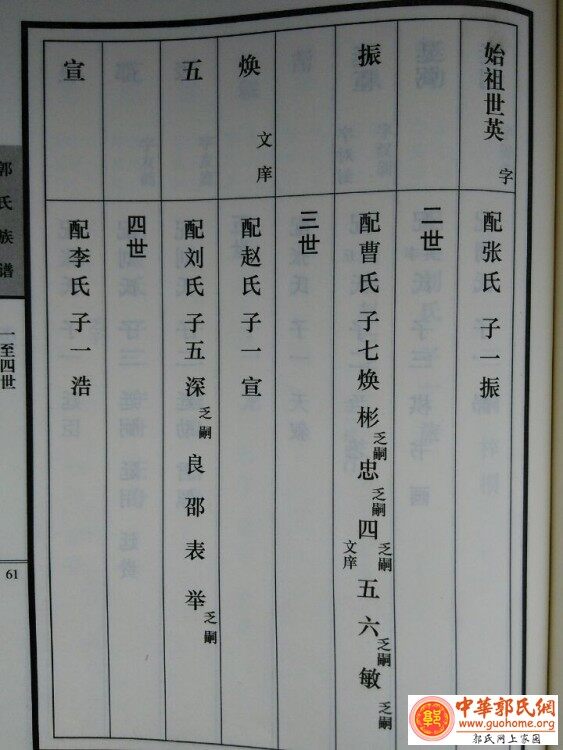 始祖世英 字
配张氏 子一振
二世
振
配曹氏 子七焕 彬乏嗣 忠乏嗣 四乏嗣 五文庠 六乏嗣 敏乏嗣
三世
焕 文庠
配赵氏 子一宣
五
配刘氏 子五深乏嗣 良 邵 表 举乏嗣
四世
宣
配李氏 子一浩
郭氏族谱
一至四世
61
中華郭氏網
www.guohome.org
郭氏网上家园